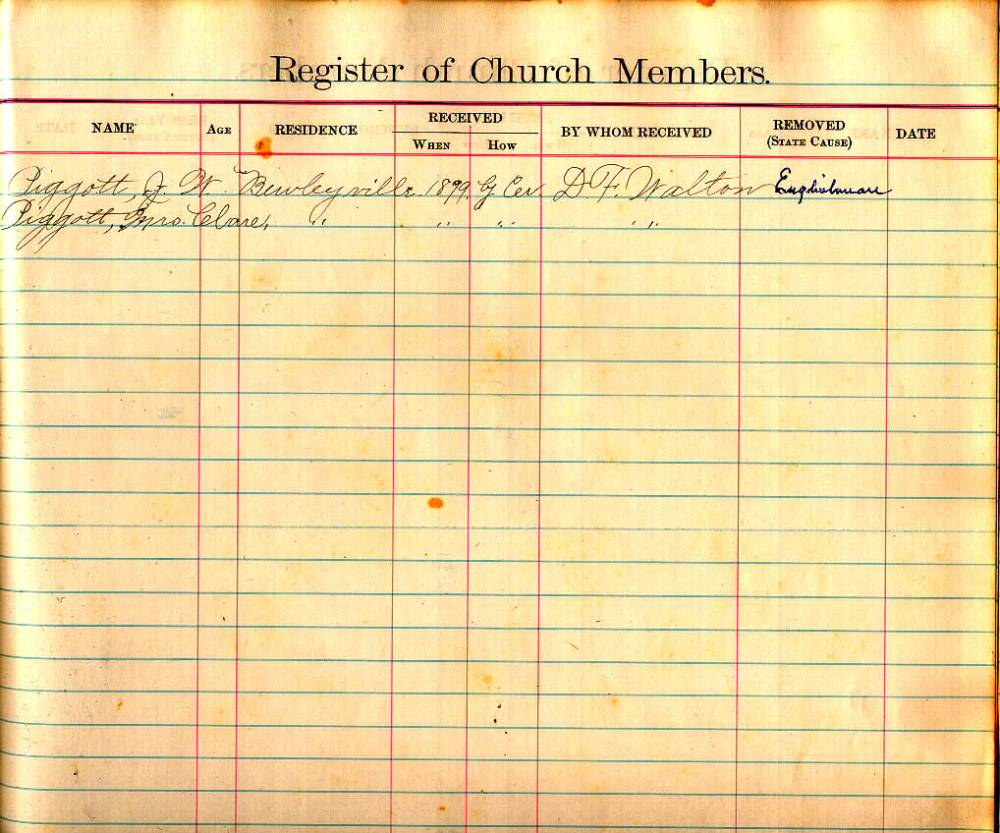 Register of Church Members.
NAME AGE RESIDENCE RECEIVED BY WHOM RECEIVED REMOVED DATE
WHEN HOW (STATE CAUSE)
Piggott, J. W. Bewleyville. 1899. By Cer D. F. Walton
Piggott, Mrs. Clare, " " " "